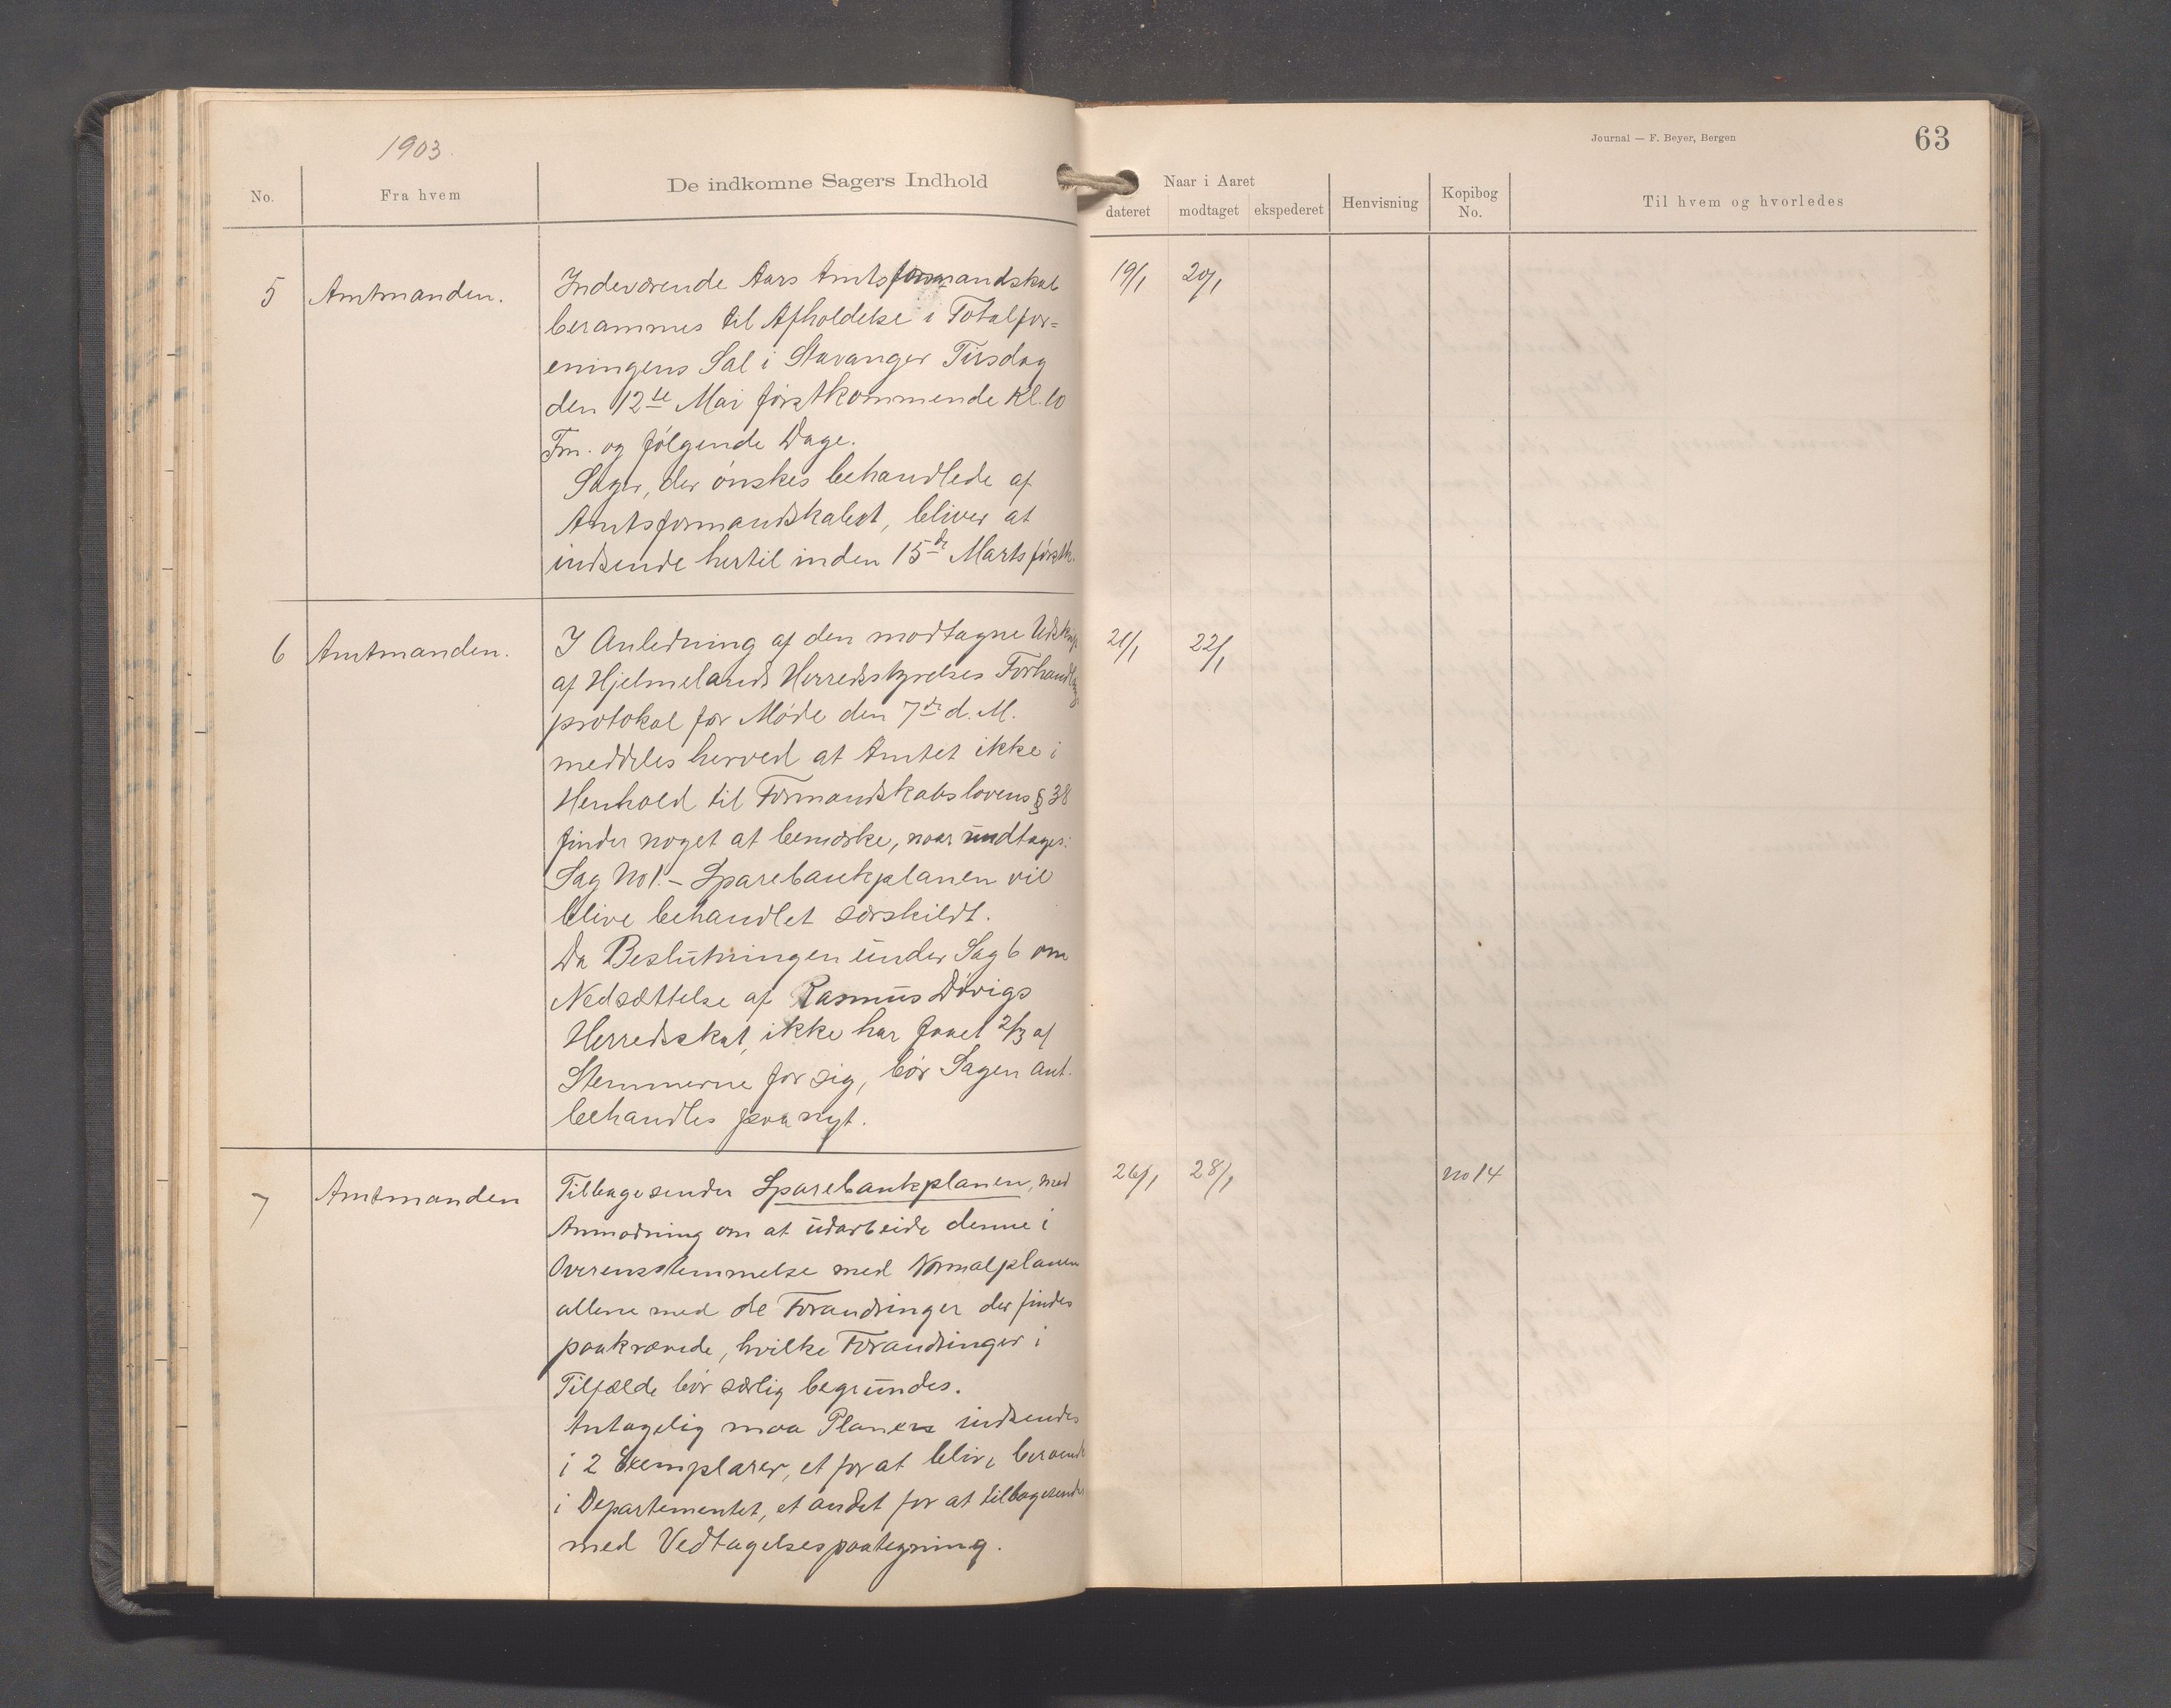 1903.
Journal — F. Beyer, Bergen
63
No.
Fra hvem
De indkomne Sagers Indhold
Naar i Aaret
dateret
modtaget
ekspederet
Henvisning
Kopibog No.
Til hvem og hvorledes
5 Amtmanden. Indeværende Aars Amtsformandskab 19/1 20/1
berammes til Afholdelse i Totalfor=
eningens Sal i Stavanger Tirsdag
den 12te Mai førstkommende Kl. 10
Fm. og følgende Dage.
Sager, der ønskes behandlede af
Amtsformandskabet, bliver at
indsende hertil inden 15de Marts førstk.
6 Amtmanden. I Anledning af den modtagne Udskrift 21/1 22/1
af Hjelmelands Herredsstyrelses Forhandlings
protokol for Møde den 7de d. M.
meddeles herved at Amtet ikke i
Henhold til Formandskabslovens § 38
finder noget at bemærke, naar undtages:
Sag No 1. – Sparebankplanen vil
blive behandlet særskildt.
Da Beslutningen under Sag 6 om
Nedsættelse af Rasmus Døvigs
Herredsskat, ikke har faaet 2/3 af
Stemmerne for sig, bør Sagen ant.
behandles paa nyt.
7 Amtmanden Tilbagesender Sparebankplanen, med 26/1 28/1 no 14
Anmodning om at udarbeide denne i
Overensstemmelse med Normalplanen
allene med de Forandringer der findes
paakrævede, hvilke Forandringer i
Tilfælde bør særlig begrundes.
Antagelig maa Planen indsendes
i 2 Exemplarer, et for at blive beroende
i Departementet, et andet for at tilbagesendes
med Vedtagelsespaategning.